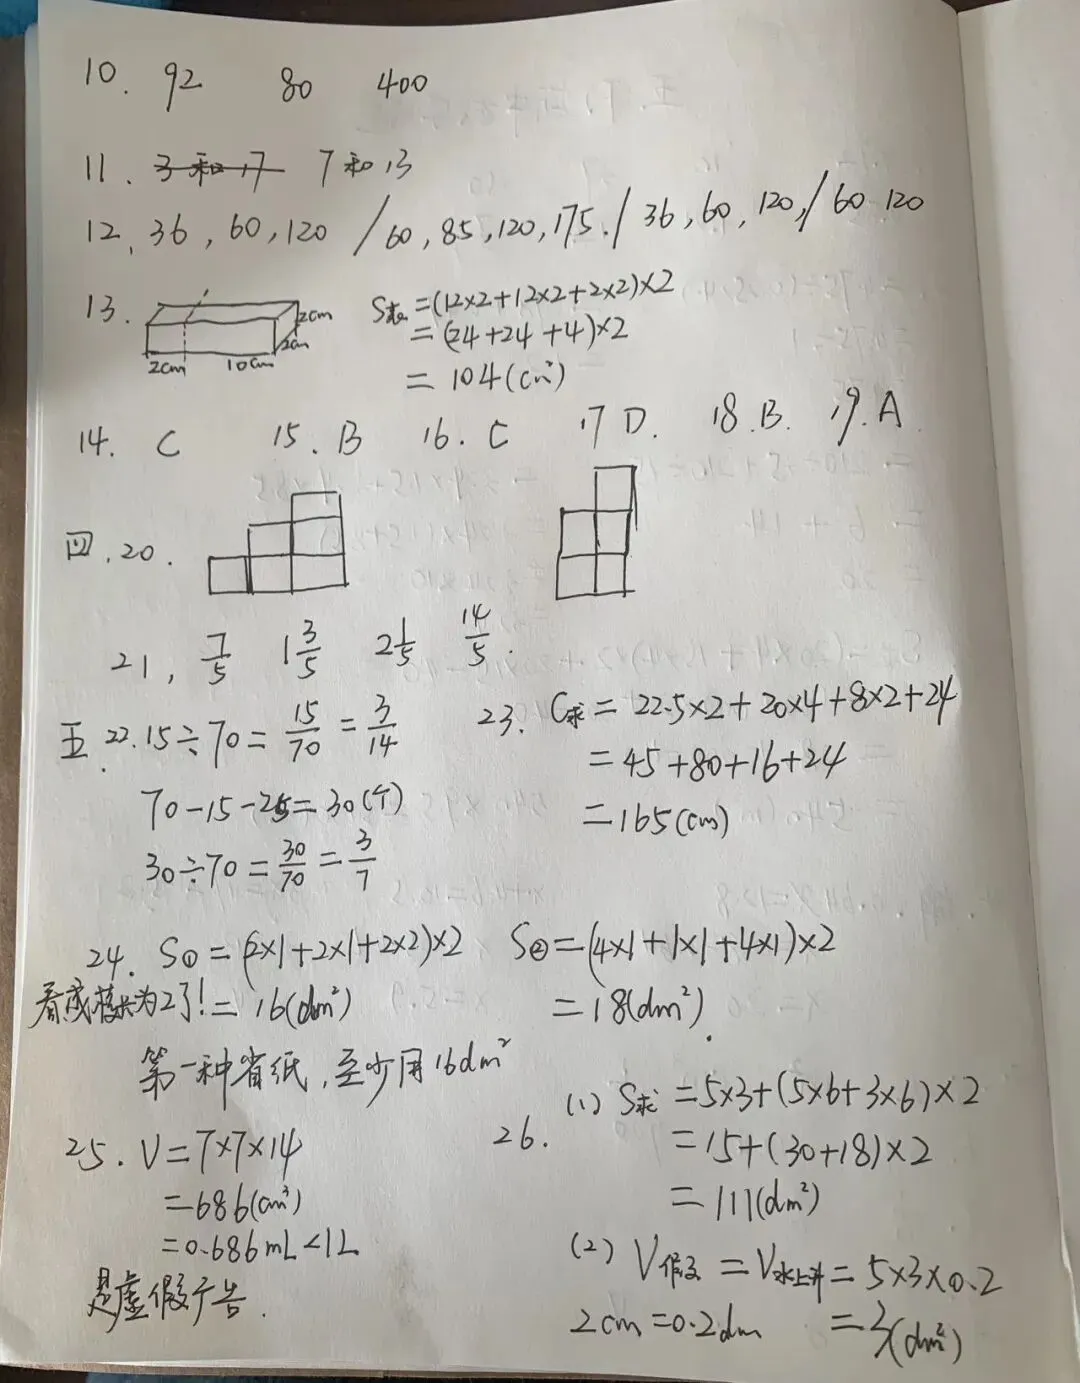 10. 92 80 400
11. 3和17 7和13
12. 36, 60, 120 / 60, 85, 120, 175. / 36, 60, 120, / 60 120
13. 2cm 10cm 2cm 2cm
S表=(12×2+12×2+2×2)×2
=(24+24+4)×2
=104(cm²)
14. C 15. B 16. C 17 D. 18. B. 19. A
四. 20.
21, 7/5 1 3/5 2 1/5 14/5.
五. 22. 15÷70=15/70=3/14
70-15-25=30(个)
30÷70=30/70=3/7
23. C求=22.5×2+20×4+8×2+24
=45+80+16+24
=165(cm)
24. S①=(2×1+2×1+2×2)×2
看成棱长为2了!=16(dm²)
S②=(4×1+1×1+4×1)×2
=18(dm²).
第一种省纸,至少用16dm²
25. V=7×7×14
=686(cm³)
=0.686mL<1L
是虚假广告.
26. (1) S求=5×3+(5×6+3×6)×2
=15+(30+18)×2
=111(dm²)
(2) V假又=V水上升=5×3×0.2
2cm=0.2dm =3(dm³)